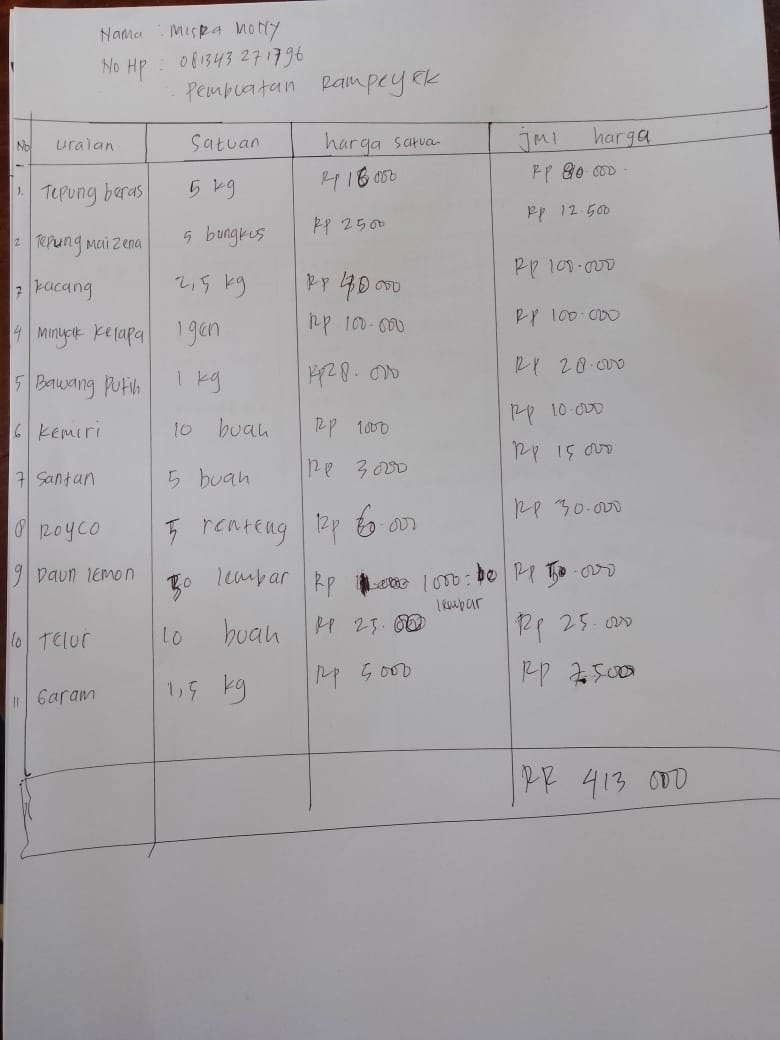 Nama : Misra Mony
No HP : 081343271796
- Pembuatan Rampeyek
No uraian Satuan harga satua jml harga
1. Tepung beras 5 kg Rp 16000 Rp 80.000.
2 Tepung Maizena 5 bungkus Rp 2500 Rp 12.500
3 Kacang 2,5 kg Rp 40000 Rp 100.000
4 Minyak Kelapa 1 gen Rp 100.000 Rp 100.000
5 Bawang Putih 1 kg Rp 28.000 Rp 28.000
6 Kemiri 10 buah Rp 1000 Rp 10.000
7 Santan 5 buah Rp 3000 Rp 15000
8 Royco 5 renteng Rp 6.000 Rp 30.000
9 Daun lemon lembar Rp 1000 : 10 Rp
lembar
10 Telur 10 buah Rp 25.000 Rp 25.000
11 Garam 1,5 kg Rp 5000 Rp 7.500
RR 413 000